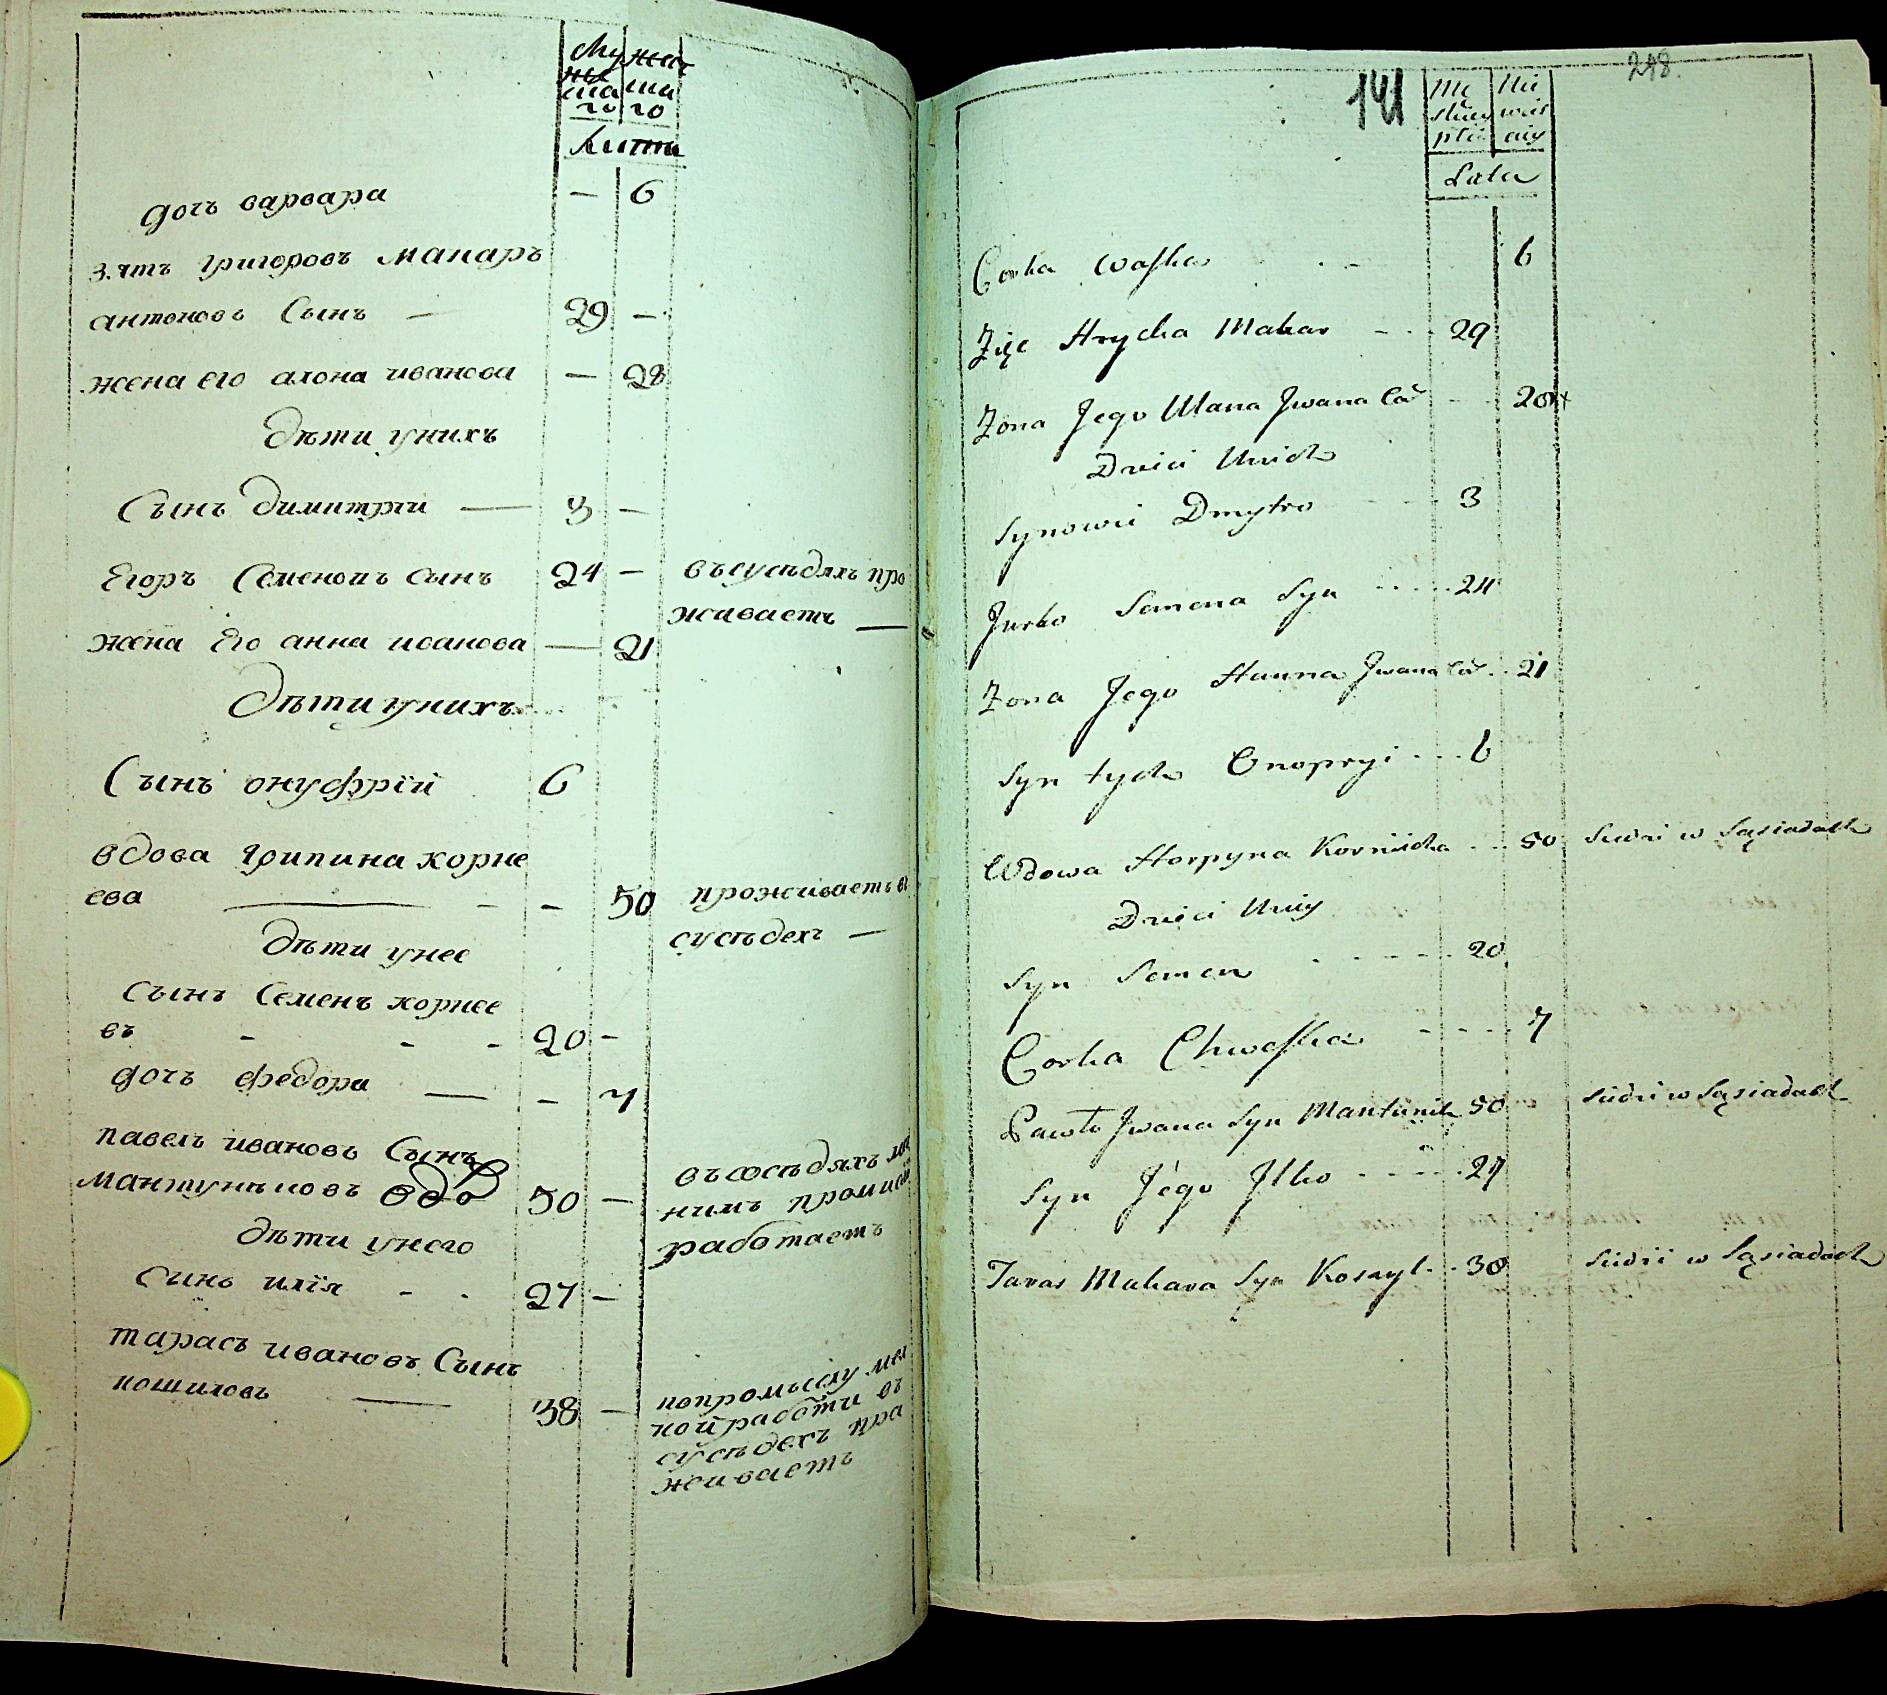 Муже женс
ска ска
го го
Лита
дочъ варвара — 6
зять григоровъ макаръ
антоновъ Сынъ — 29 —
жена его алона иванова — 28
дѣти унихъ
Сынъ димитрги — 3 —
Егоръ Семеновъ сынъ 24 — въсусѣдяхъ про
живаетъ —
жена Его анна иванова — 21
дѣти унихъ
Сынъ онуфрїй 6
вдова Грипина корне
ева — — — 50 проживаетъ въ
сусѣдехъ —
дѣти унее
сынъ Семенъ корнее
въ - - - 20 —
дочъ федора — — 7
павелъ ивановъ Сынъ
мантуньковъ вдо 50 —
въсосѣдяхъ
нимъ
работаетъ
дѣти унего
сынъ илїя - . 27 —
тарасъ ивановъ Сынъ
кошиловъ — 38 —
попромыслу
ной работи въ
сусѣдехъ про
живаетъ
141
248.
Mę Nie
skiey wieś
płci ciey
Lata
Corka Waska . - 6
Zięc Hrycka Makar - - - 29
Zona Jego Ulana Jwana Cór - - 28
Dzieci Unich
Synowie Dmytro - - - 3
Jurko Semena Syn - - - - 24
Zona Jego Hanna Jwana Cór . . 21
Syn tych Onopryi - - - 6
Wdowa Horpyna Korniicha - - 50 Siedzi w Sąsiadach
Dzieci Uniey
Syn Semen - - - - - 20
Corka Chweska - - - - 7
Pawło Jwana Syn Mantunik 50 Siedzi w Sąsiadach
Syn Jego Jlko - - - - . 27
Taras Makara Syn Koszyl - - 38 Siedzi w Sąsiadach